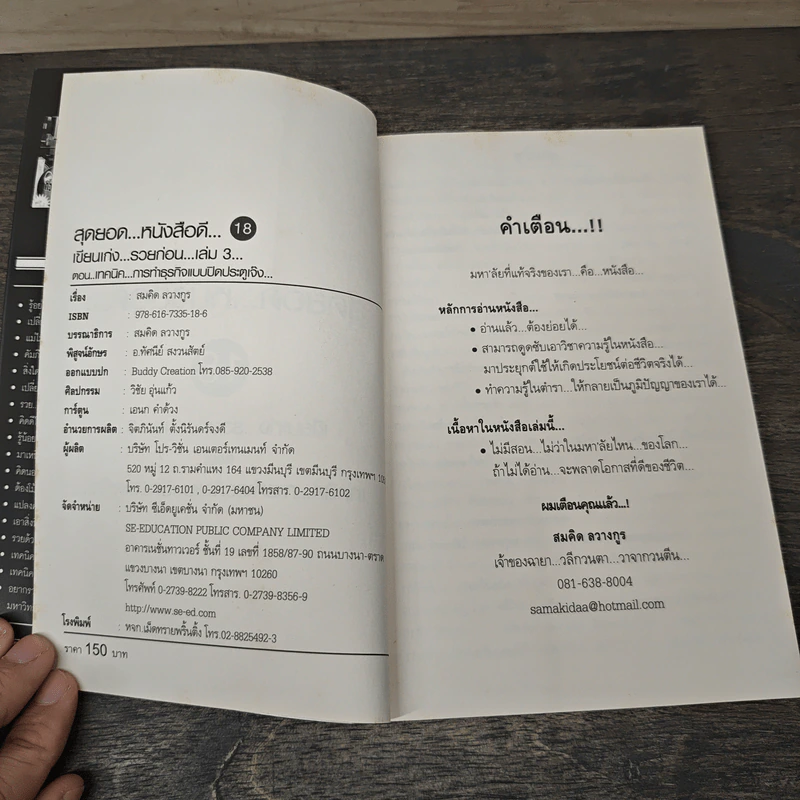 สุดยอด...หนังสือดี... 18
เขียนเก่ง...รวยก่อน...เล่ม 3...
ตอน..เทคนิค...การทำธุรกิจแบบปิดประตูเจ๊ง...
เรื่อง : สมคิด ลวางกูร
ISBN : 978-616-7335-18-6
บรรณาธิการ : สมคิด ลวางกูร
พิสูจน์อักษร : อ.ทัศนีย์ สงวนสัตย์
ออกแบบปก : Buddy Creation โทร.085-920-2538
ศิลปกรรม : วิชัย อุ่นแก้ว
การ์ตูน : เอนก คำด้วง
อำนวยการผลิต : จิตภินันท์ ตั้งนิรันดร์จงดี
ผู้ผลิต : บริษัท โปร-วิชั่น เอนเตอร์เทนเมนท์ จำกัด
520 หมู่ 12 ถ.รามคำแหง 164 แขวงมีนบุรี เขตมีนบุรี กรุงเทพฯ
โทร. 0-2917-6101 , 0-2917-6404 โทรสาร. 0-2917-6102
จัดจำหน่าย : บริษัท ซีเอ็ดยูเคชั่น จำกัด (มหาชน)
SE-EDUCATION PUBLIC COMPANY LIMITED
อาคารเนชั่นทาวเวอร์ ชั้นที่ 19 เลขที่ 1858/87-90 ถนนบางนา-ตราด
แขวงบางนา เขตบางนา กรุงเทพฯ 10260
โทรศัพท์ 0-2739-8222 โทรสาร. 0-2739-8356-9
http://www.se-ed.com
โรงพิมพ์ : หจก.เม็ดทรายพริ้นติ้ง โทร.02-8825492-3
ราคา 150 บาท
คำเตือน...!!
มหา'ลัยที่แท้จริงของเรา...คือ...หนังสือ...
หลักการอ่านหนังสือ...
• อ่านแล้ว...ต้องย่อยได้...
• สามารถดูดซับเอาวิชาความรู้ในหนังสือ...
มาประยุกต์ใช้ให้เกิดประโยชน์ต่อชีวิตจริงได้...
• ทำความรู้ในตำรา...ให้กลายเป็นภูมิปัญญาของเราได้...
เนื้อหาในหนังสือเล่มนี้...
• ไม่มีสอน...ไม่ว่าในมหา'ลัยไหน...ของโลก...
ถ้าไม่ได้อ่าน...จะพลาดโอกาสที่ดีของชีวิต...
ผมเตือนคุณแล้ว...!
สมคิด ลวางกูร
เจ้าของฉายา...วลีกวนตา...วาจากวนตีน...
081-638-8004
samakidaa@hotmail.com